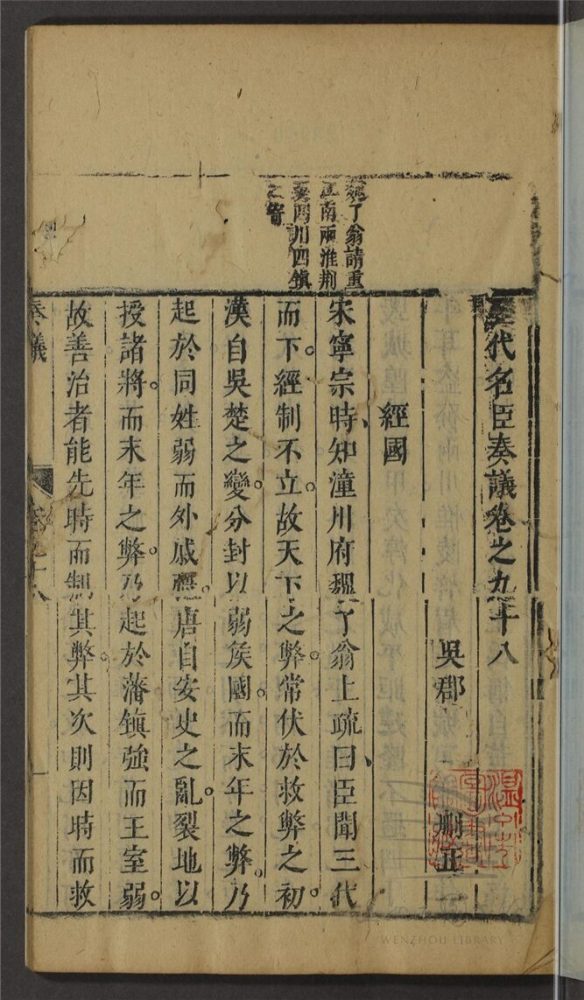 歷代名臣奏議卷之九十八
吳郡
刪正
經國
宋寧宗時知潼川府魏了翁上疏曰、臣聞三代
而下。經制不立。故天下之弊。常伏於救弊之初。
漢自吳楚之變。分封以弱侯國。而末年之弊。乃
起於同姓弱而外戚
唐自安史之亂。裂地以
授諸將。而末年之弊。乃起於藩鎮強而王室弱。
故善治者能先時而制其弊。其次則因時而救
魏了翁請重
江南兩淮荆
襄四川四鎮
之
奏議
卷九十八
WENZHOU LIBRARY